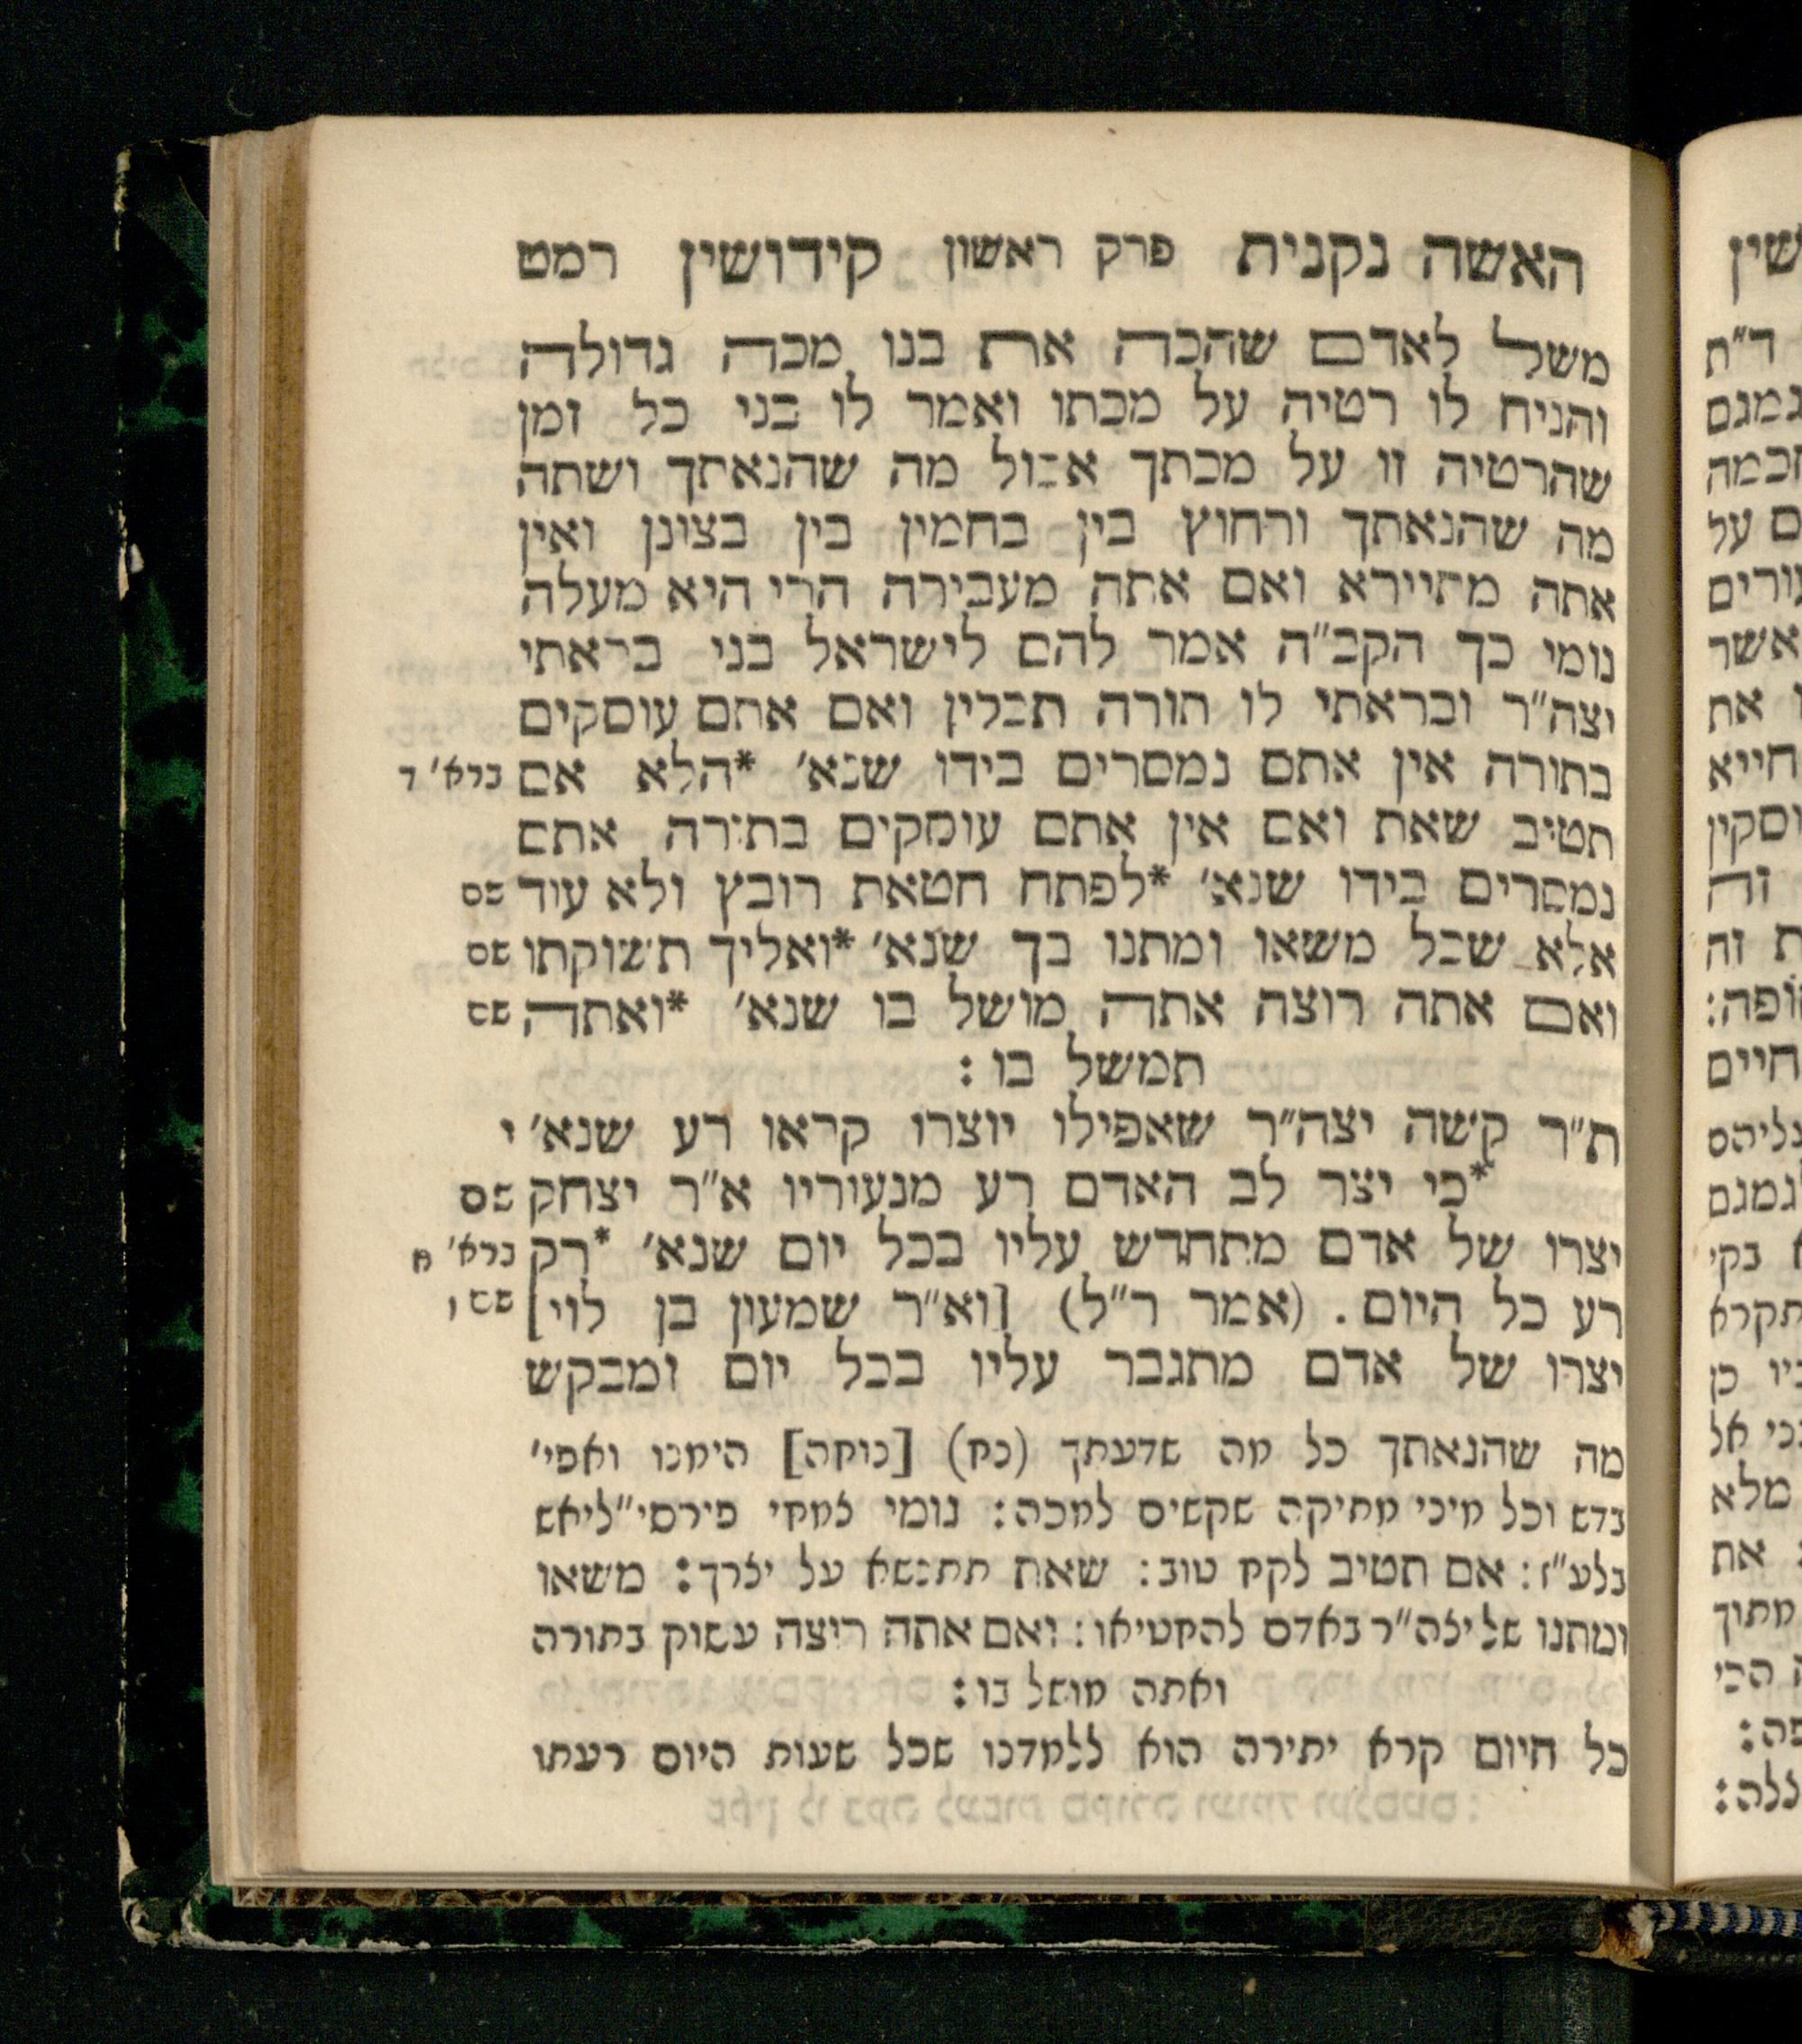 האשה נקנית פרק ראשון קידושין רמט
משל לאדם שהכה את בנו מכה גדולה
והניח לו רטיה על מכתו ואמר לו בני כל זמן
שהרטיה זו על מכתך אכול מה שהנאתך ושתה
מה שהנאתך ורחוץ בין בחמין בין בצונן ואין
אתה מתיירא ואם אתה מעבירה הרי היא מעלה
נומי כך הקב"ה אמר להם לישראל בני בראתי
יצה"ר ובראתי לו תורה תבלין ואם אתם עוסקים
בתורה אין אתם נמסרים בידו שנא' *הלא אם ברא' ד
תטיב שאת ואם אין אתם עוסקים בתורה אתם
נמסרים בידו שנא' *לפתח חטאת רובץ ולא עוד שם
אלא שכל משאו ומתנו בך שנא' *ואליך תשוקתו שם
ואם אתה רוצה אתה מושל בו שנא' *ואתה שם
תמשל בו:
ת"ר קשה יצה"ר שאפילו יוצרו קראו רע שנא' י
*כי יצר לב האדם רע מנעוריו א"ר יצחק שם
יצרו של אדם מתחדש עליו בכל יום שנא' *רק ברא' ח
רע כל היום. (אמר ר"ל) [וא"ר שמעון בן לוי] שם ו
יצרו של אדם מתגבר עליו בכל יום ומבקש
מה שהנאתך כל מה שדעתך (כח) [נוחה] הימנו ואפי'
בדש וכל מיני מתיקה שקשים למכה: נומי למחי פירסי"ליאש
בלע"ז: אם תטיב לקח טוב: שאת תתנשא על יצרך: משאו
ומתנו של יצה"ר באדם להחטיאו: ואם אתה רוצה עשוק בתורה
ואתה מושל בו:
כל היום קרא יתירה הוא ללמדנו שכל שעות היום רעתו